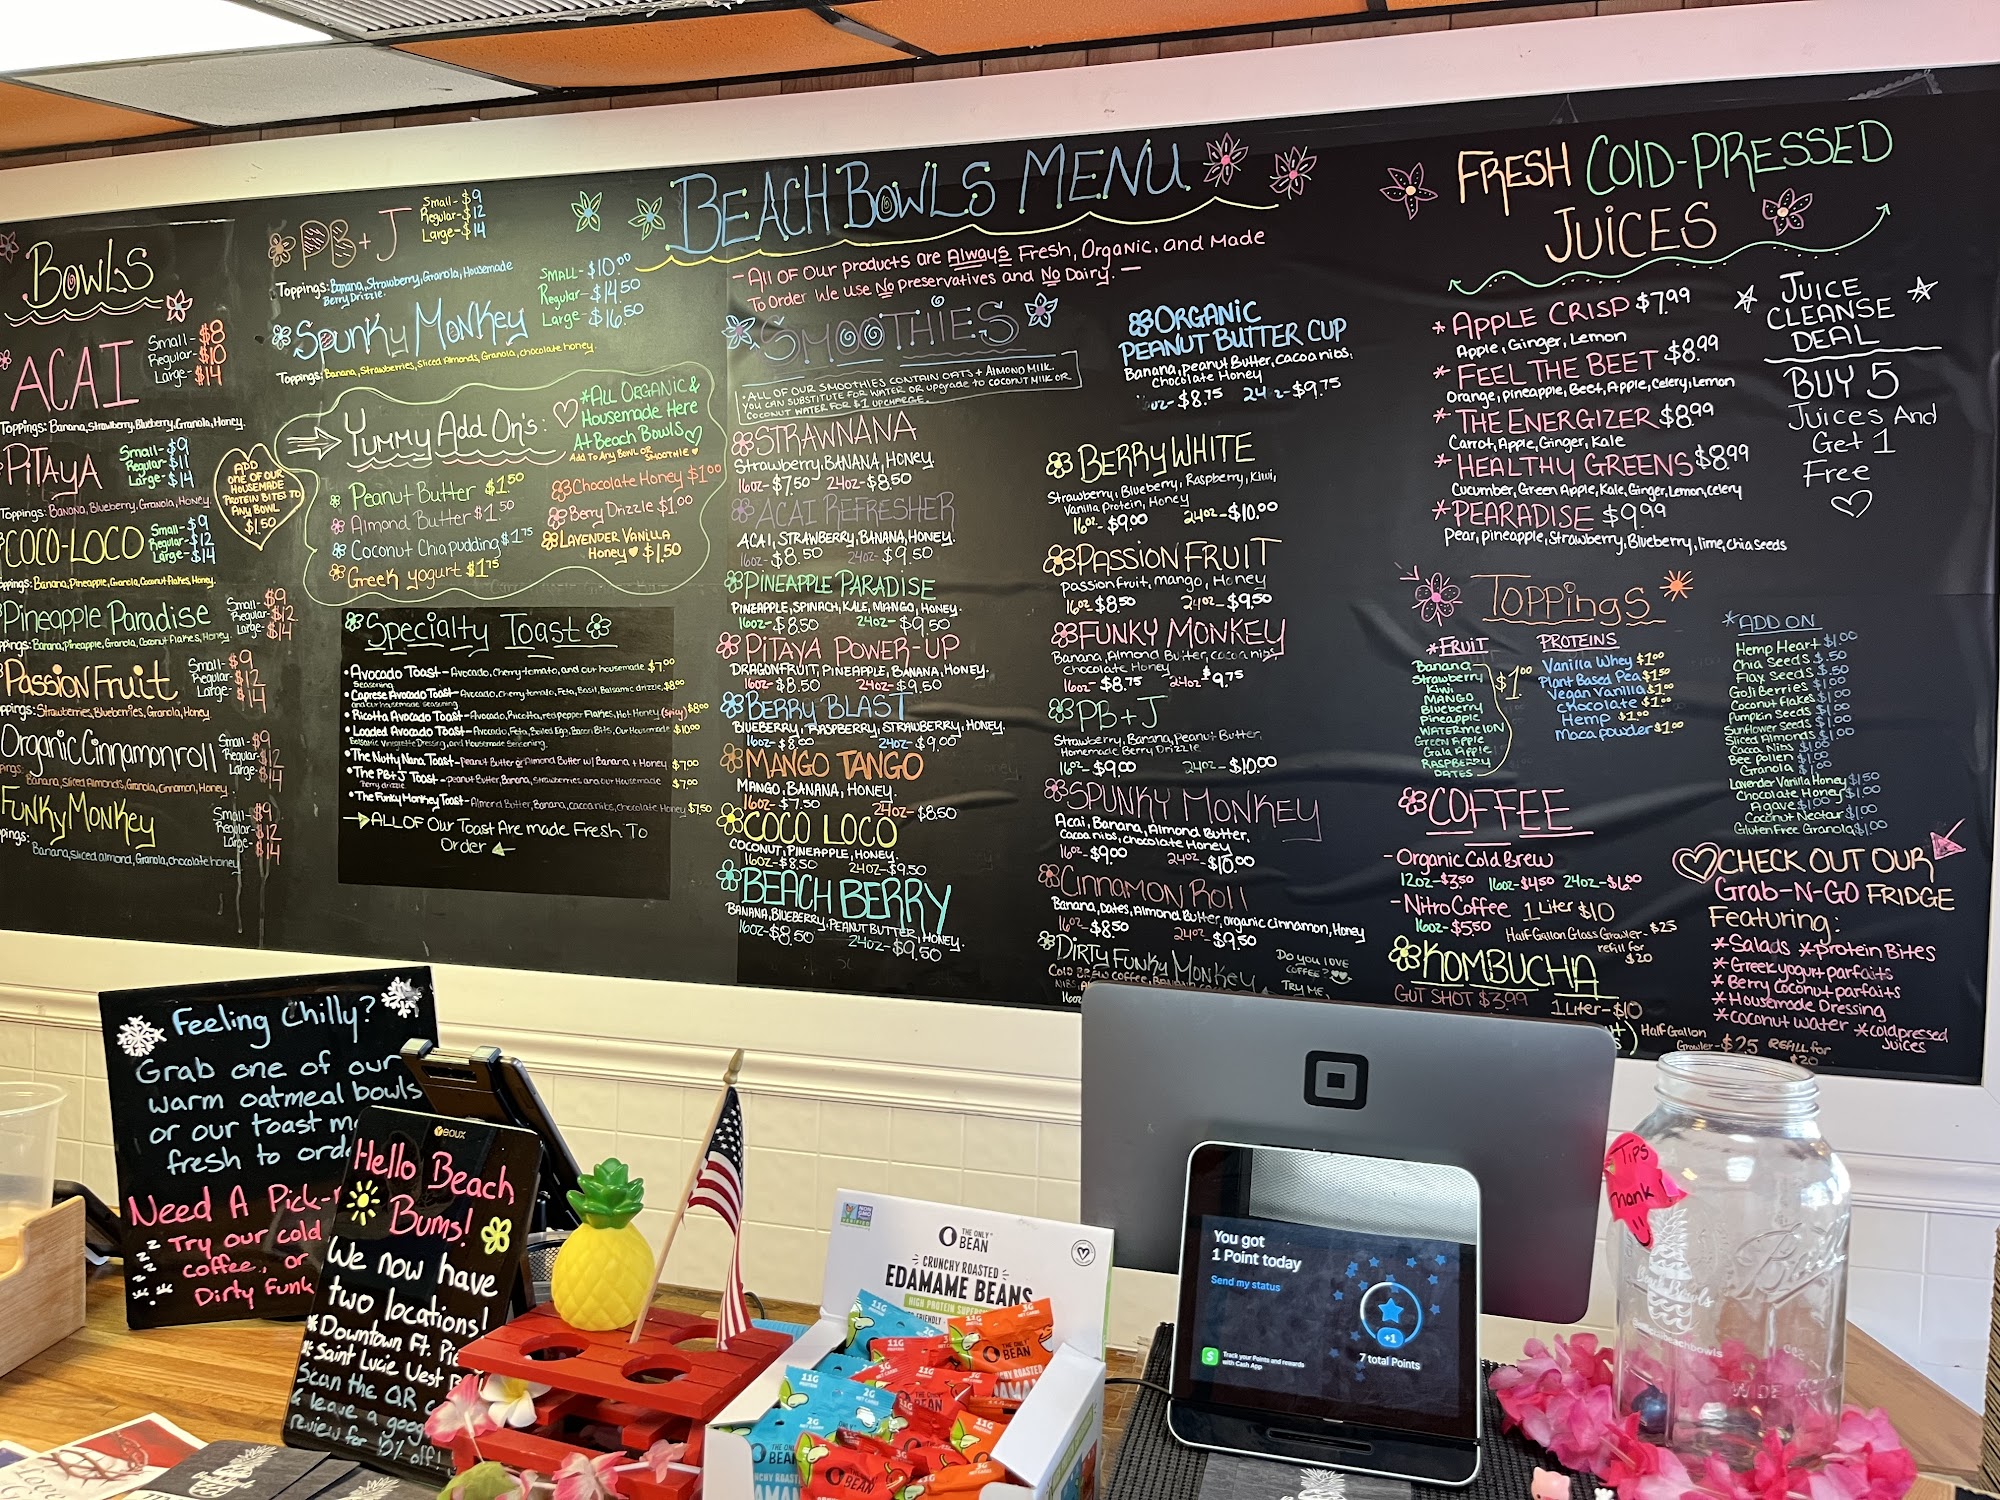 BOWLS
ACAI
Small- $8
Regular- $10
Large- $14
Toppings: Banana, Strawberry, Blueberry, Granola, Honey.
PITAYA
Small- $9
Regular- $11
Large- $14
Toppings: Banana, Blueberry, Granola, Honey.
COCO-LOCO
Small- $9
Regular- $12
Large- $14
oppings: Banana, Pineapple, Granola, Coconut flakes, Honey.
Pineapple Paradise
Small- $9
Regular- $12
Large- $14
pings: Banana, Pineapple, Granola, Coconut Flakes, Honey.
Passion Fruit
Small- $9
Regular- $12
Large- $14
ppings: Strawberries, Blueberries, Granola, Honey
Organic Cinnamon roll
Small- $9
Regular- $12
Large- $14
pings: Banana, Sliced Almonds, Granola, Cinnamon, Honey.
Funky Monkey
Small- $9
Regular- $12
Large- $14
pings: Banana, sliced almond, Granola, chocolate honey
ADD
ONE OF OUR
HOUSEMADE
PROTEIN BITES TO
ANY BOWL
$1.50
PB+J
Small- $9
Regular- $12
Large- $14
Toppings: Banana, Strawberry, Granola, Housemade
Berry Drizzle.
Spunky Monkey
SMALL- $10.00
Regular- $14.50
Large- $16.50
Toppings: Banana, Strawberries, Sliced Almonds, Granola, chocolate honey.
Yummy Add On's:
*ALL ORGANIC &
Housemade Here
At Beach Bowls
Add To Any Bowl or Smoothie
Peanut Butter $1.50
Almond Butter $1.50
Coconut Chia pudding $1.75
Greek yogurt $1.75
Chocolate Honey $1.00
Berry Drizzle $1.00
LAVENDER VANILLA
Honey $1.50
Specialty Toast
• Avocado Toast - Avocado, Cherry tomato, and our housemade $7.00
Seasoning
• Caprese Avocado Toast - Avocado, Cherry tomato, Feta, Basil, Balsamic drizzle, $8.00
and our housemade seasoning
• Ricotta Avocado Toast - Avocado, Ricotta, red pepper flakes, Hot Honey (spicy) $8.00
• Loaded Avocado Toast - Avocado, Feta, Boiled Egg, Bacon Bits, Our Housemade $10.00
Balsamic Vinegrette Dressing, and Housemade Seasoning.
• The Nutty Nana Toast - Peanut Butter or Almond Butter w/ Banana + Honey $7.00
• The PB+J Toast - peanut Butter, Banana, strawberries and our Housemade $7.00
Berry drizzle
• The Funky Monkey Toast - Almond Butter, Banana, cacao nibs, chocolate Honey $7.50
ALL OF Our Toast Are made Fresh To
Order
BEACH BOWLS MENU
- All OF Our products are Always Fresh, Organic, and Made
To Order We Use No Preservatives and No Dairy. -
SMOOTHIES
• ALL OF OUR SMOOTHIES CONTAIN OATS + ALMOND MILK.
YOU CAN SUBSTITUTE FOR WATER OR upgrade to COCONUT MILK OR
COCONUT WATER FOR $1 UPCHARGE.
STRAWNANA
Strawberry, BANANA, HONEY.
16oz- $7.50 24oz- $8.50
ACAI REFRESHER
ACAI, STRAWBERRY, BANANA, HONEY.
16oz- $8.50 24oz- $9.50
PINEAPPLE PARADISE
PINEAPPLE, SPINACH, KALE, MANGO, HONEY.
16oz- $8.50 24oz- $9.50
PITAYA POWER-UP
DRAGONFRUIT, PINEAPPLE, BANANA, HONEY.
16oz- $8.50 24oz- $9.50
BERRY BLAST
BLUEBERRY, RASPBERRY, STRAWBERRY, HONEY.
16oz- $8.00 24oz- $9.00
MANGO TANGO
MANGO, BANANA, HONEY.
16oz- $7.50 24oz- $8.50
COCO LOCO
COCONUT, PINEAPPLE, HONEY.
16oz- $8.50 24oz- $9.50
BEACH BERRY
BANANA, BLUEBERRY, PEANUT BUTTER, HONEY.
16oz- $8.50 24oz- $9.50
ORGANIC
PEANUT BUTTER CUP
Banana, peanut Butter, cacao nibs,
chocolate Honey
oz- $8.75 24 z- $9.75
BERRY WHITE
Strawberry, Blueberry, Raspberry, Kiwi,
Vanilla Protein, Honey
16oz- $9.00 24oz- $10.00
PASSION FRUIT
passion fruit, mango, Honey
16oz $8.50 24oz- $9.50
FUNKY MONKEY
Banana, Almond Butter, cacao nibs,
Chocolate Honey
16oz- $8.75 24oz $9.75
PB+J
Strawberry, Banana, Peanut Butter,
Homemade Berry Drizzle
16oz- $9.00 24oz- $10.00
SPUNKY MONKEY
Acai, Banana, Almond Butter,
Cacao nibs, chocolate Honey
16oz- $9.00 24oz- $10.00
CINNAMON ROLL
Banana, Dates, Almond Butter, organic cinnamon, Honey
16oz $8.50 24oz- $9.50
DIRTY FUNKY MONKEY
COLD BREW COFFEE, BANANA
NIBS,
16oz
DO YOU LOVE
COFFEE?
TRY ME,
FRESH COLD-PRESSED
JUICES
* APPLE CRISP $7.99
Apple, Ginger, Lemon
* FEEL THE BEET $8.99
Orange, pineapple, Beet, Apple, Celery, Lemon
* THE ENERGIZER $8.99
Carrot, Apple, Ginger, Kale
* HEALTHY GREENS $8.99
Cucumber, Green Apple, Kale, Ginger, Lemon, celery
* PEARADISE $9.99
Pear, pineapple, Strawberry, Blueberry, lime, chia seeds
JUICE
CLEANSE
DEAL
BUY 5
Juices And
Get 1
Free
Toppings
*FRUIT
Banana
Strawberry
Kiwi
MANGO
Blueberry
Pineapple
WATERMELON
Green Apple
Gala Apple
RASPBERRY
DATES
$1.00
PROTEINS
Vanilla Whey $1.00
Plant Based Pea $1.50
Vegan Vanilla $1.00
Chocolate $1.00
Hemp $1.00
Maca powder $1.00
*ADD ON
Hemp Heart $1.00
Chia Seeds $.50
Flax Seeds $.50
Goji Berries $1.00
Coconut Flakes $1.00
Pumpkin Seeds $1.00
Sunflower seeds $1.00
Sliced Almonds $1.00
Cacao Nibs $1.00
Bee pollen $1.00
Granola $1.00
Lavender Vanilla Honey $1.50
Chocolate Honey $1.00
Agave $1.00
Coconut Nectar $1.00
Gluten Free Granola $1.00
COFFEE
- Organic Cold Brew
12oz- $3.50 16oz- $4.50 24oz- $6.00
- Nitro Coffee 1 Liter $10
16oz- $5.50 Half Gallon Glass Growler- $25
refill for
$20
KOMBUCHA
GUT SHOT $3.99 1 Liter- $10
Half Gallon
Growler- $25 REFILL for
$20
CHECK OUT OUR
Grab-N-GO FRIDGE
Featuring:
* Salads * Protein Bites
* Greek yogurt parfaits
* Berry Coconut parfaits
* Housemade Dressing
* coconut water * cold pressed
juices
Feeling Chilly?
Grab one of our
warm oatmeal bowls
or our toast m
fresh to ord
Need A Pick-
Try our cold
coffee, or
Dirty Funk
Yeoux
Hello Beach
Bums!
We now have
two locations!
* Downtown Ft. Pie
* Saint Lucie West
Scan the QR
& leave a goog
review for 10% off!
NON GMO
THE ONLY
BEAN
CRUNCHY ROASTED
EDAMAME BEANS
HIGH PROTEIN
You got
1 Point today
Send my status
+1
7 total Points
Track your Points and rewards
with Cash App
TIPS
Thank
Ball
WIDE